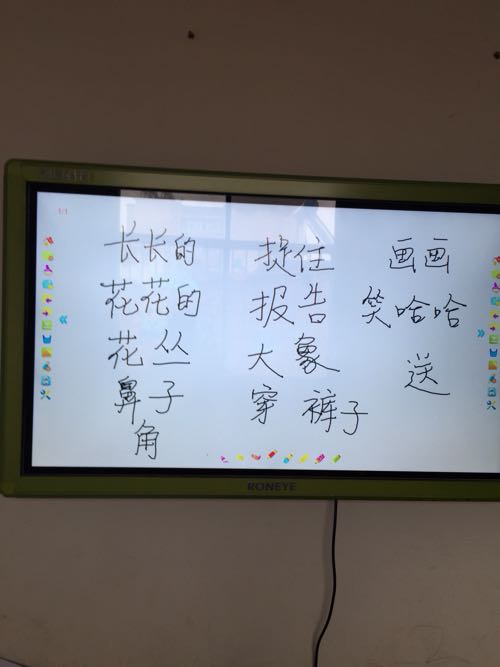 1/1
长长的
花花的
花丛
鼻子
角
捉住
报告
大象
穿 裤子
画画
笑哈哈
送
RONEYE